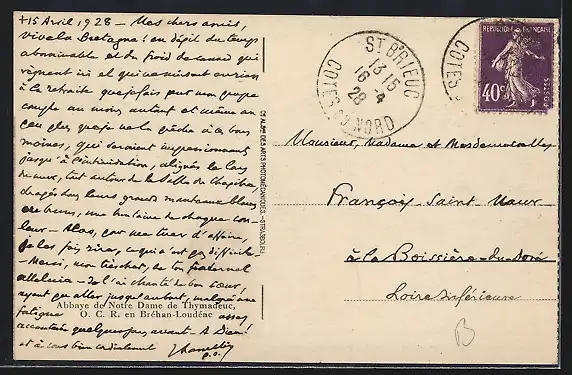 +15 Avril 1928 - Mes chers amis,
Vive la Bretagne ! en dépit du temps
abominable et du froid de canard qui
règnent ici et qui ne nuisent en rien
à la retraite que je fais pour mon propre
compte au moins autant et même un
peu plus que je ne la prêche à ces bons
moines, qui seraient impressionnants
jusqu'à l'intimidation, alignés le long
du mur, tout autour de la Salle du Chapitre
drapés dans leurs grands manteaux blancs
ou bruns, une trentaine de chaque cou-
leur - Alas, pour me tirer d'affaire,
je les fais rire, ce qui n'est pas difficile.
- Merci, mon très cher, de ton fraternel
alleluia - Je l'ai chanté de bon cœur,
ayant pu aller jusqu'au bout, malgré une
fatigue assez
accentuée quelquefois avant. A Dieu !
et à vous bien cordialement
Abbaye de Notre Dame de Thymadeuc,
O. C. R. en Bréhan-Loudéac
CIE ALSACIENNE DES ARTS PHOTOMÉCANIQUES - STRASBOURG
ST BRIEUC
13 15
16 - 4
28
COTES DU NORD
COTES
REPUBLIQUE FRANÇAISE
40c
POSTES
Monsieur, Madame et Mesdemoiselles
François Saint Maur
à la Boissière-du-Doré
Loire inférieure
B